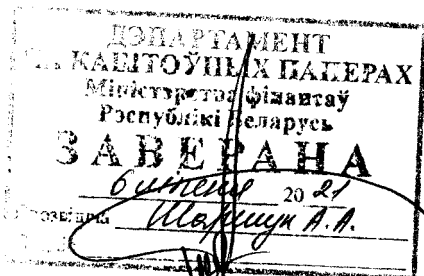 ДЭПАРТАМЕНТ
ПА КАШТОЎНЫХ ПАПЕРАХ
Міністэрства фінансаў
Рэспублікі Беларусь
ЗАВЕРАНА
6 ліпеня 2021
Прозвішча А.А.